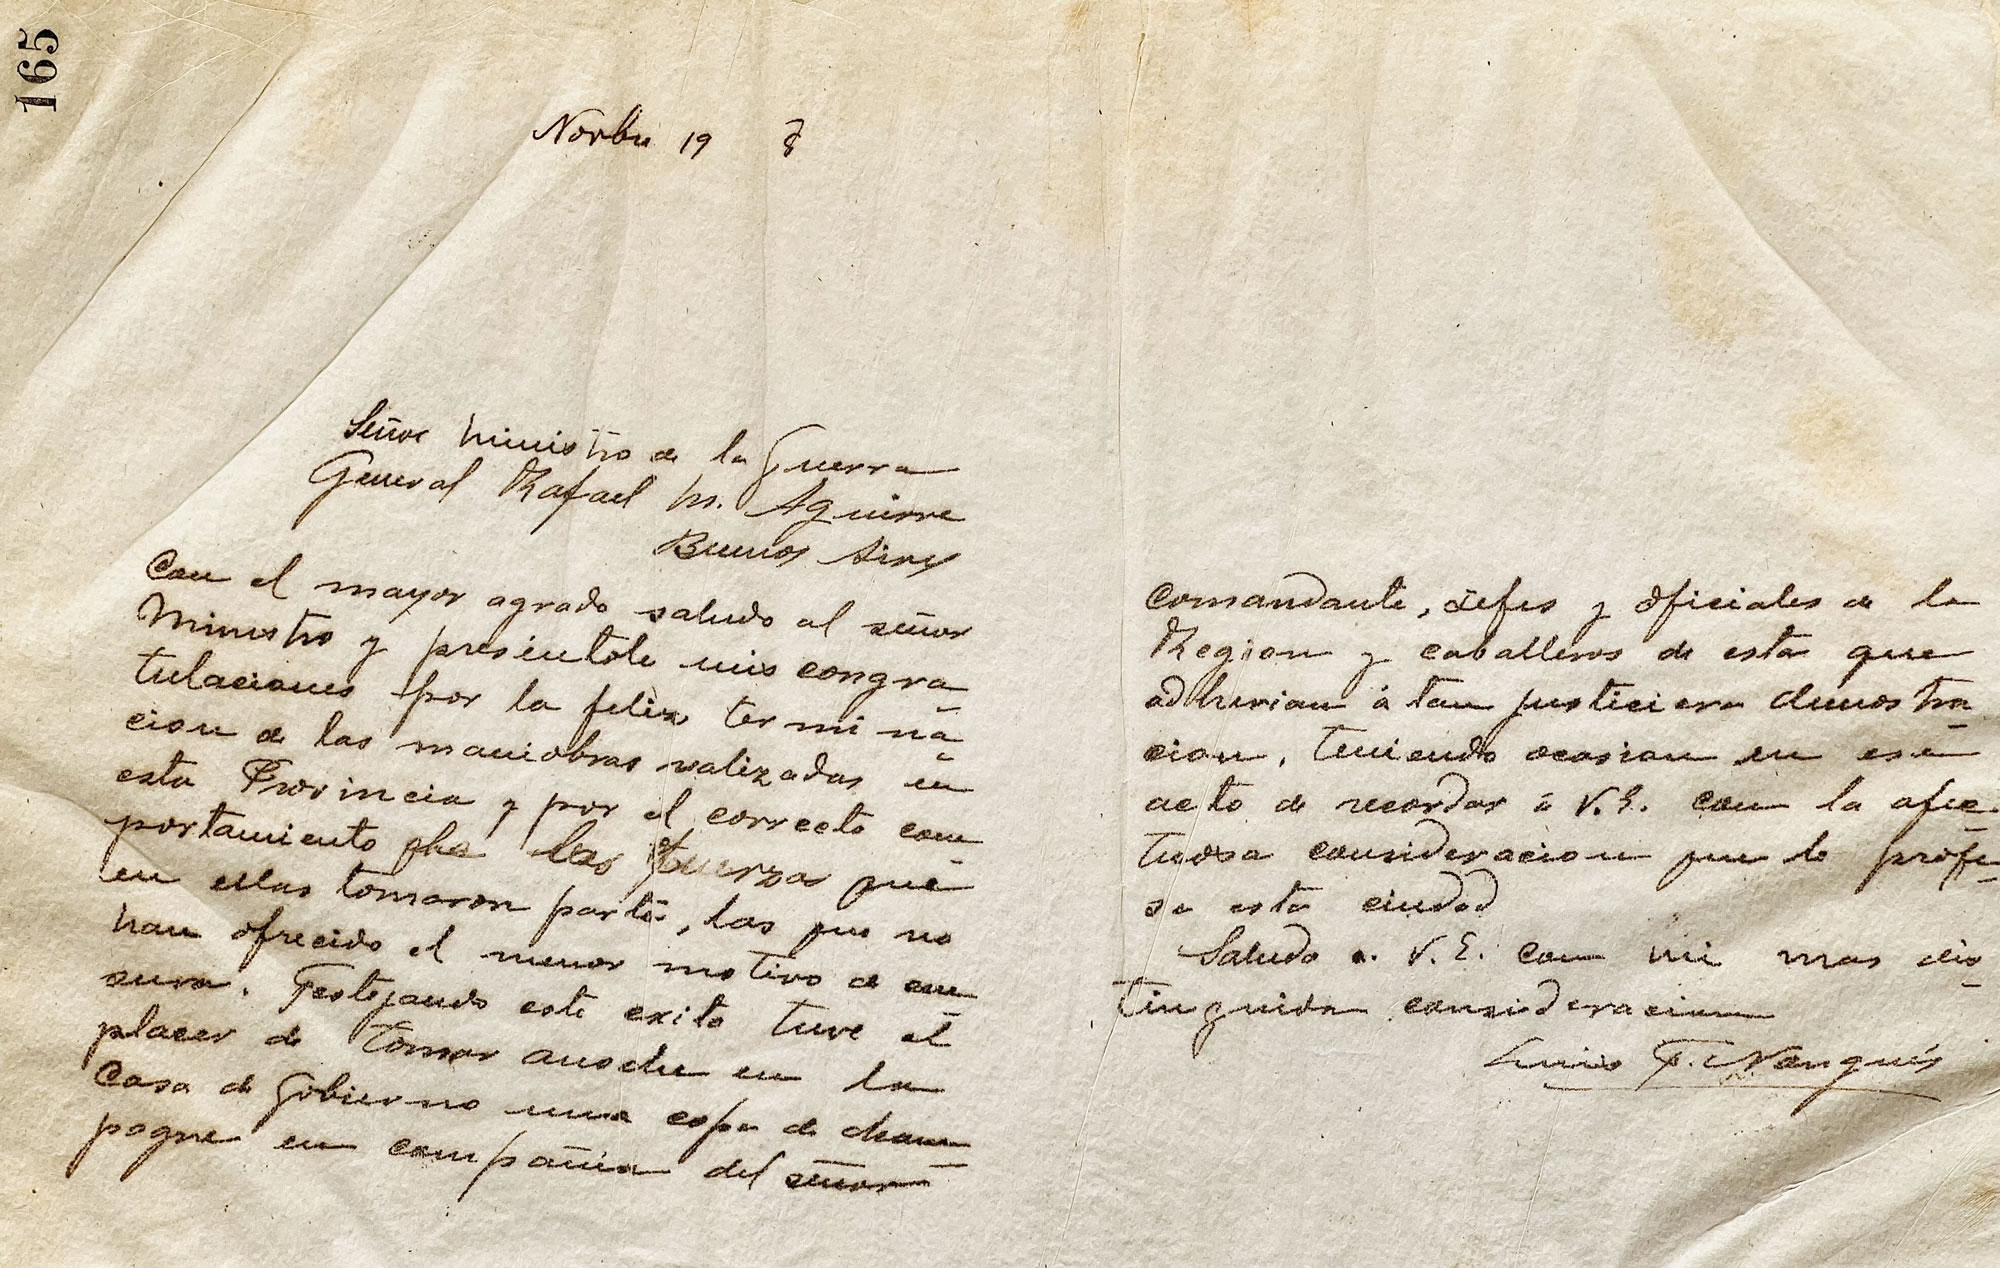 165
Novbre 19 8
Señor Ministro de la Guerra
General Rafael M. Aguirre
Buenos Aires
Con el mayor agrado saludo al señor
Ministro y presentole mis congra
tulaciones por la feliz termina
cion de las maniobras realizadas en
esta Provincia y por el correcto com
portamiento de las fuerzas que
en ellas tomaron parte, las que no
han ofrecido el menor motivo de cen
sura. Festejando este exito tuve el
placer de tomar anoche en la
Casa de Gobierno una copa de cham
pagne en compañia del señor
comandante, Jefes y oficiales de la
Region y caballeros de esta que
adherian á tan justiciera demostra
cion, teniendo ocasion en ese
acto de recordar á V.E. con la afec-
tuosa consideracion que le profe-
sa esta ciudad
Saludo a V.E. con mi mas dis-
tinguida consideracion
Luis F. Nougués